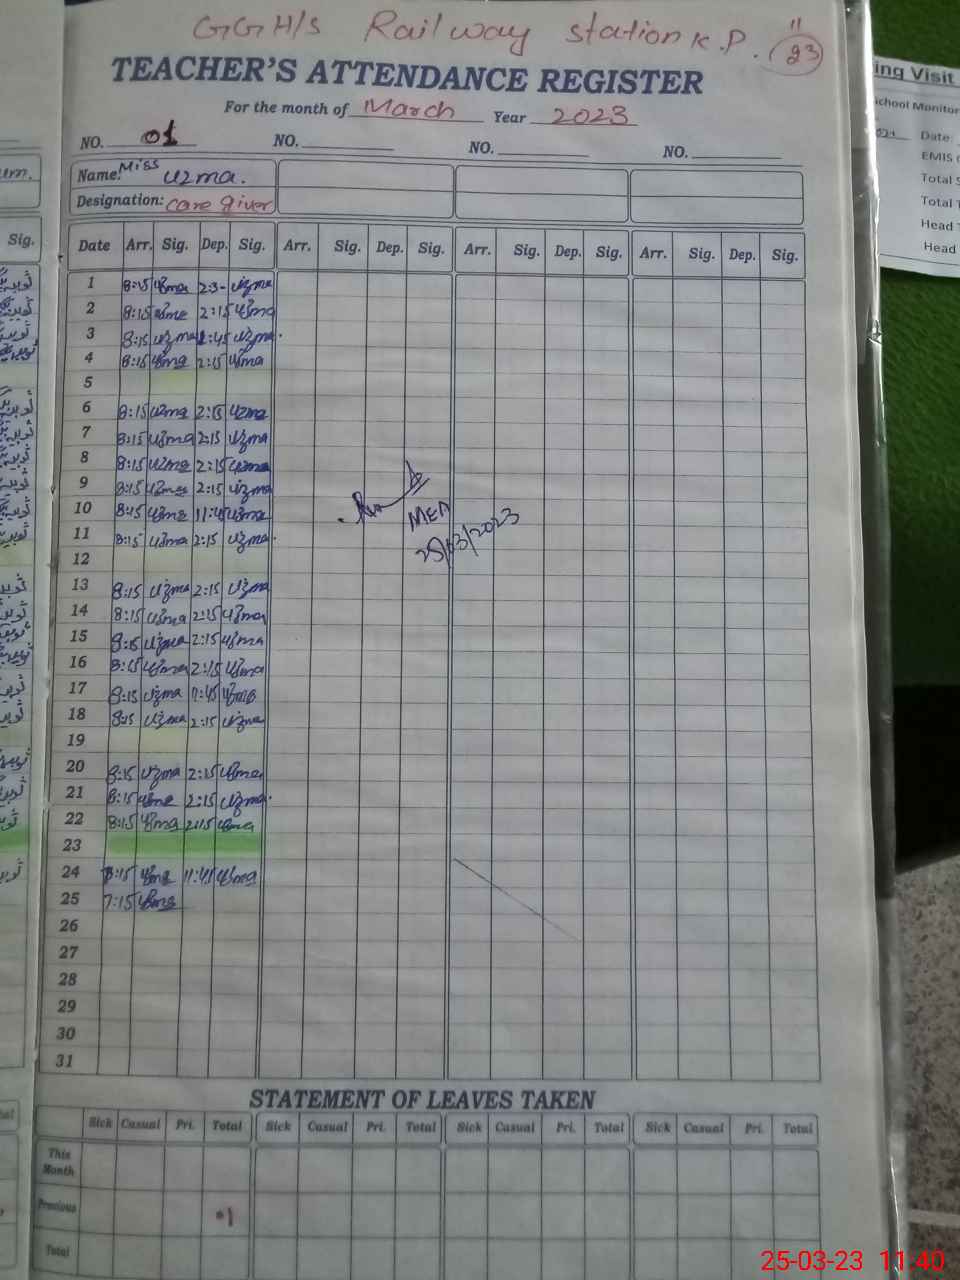 GGH/S Railway station K.P. 11 23
TEACHER'S ATTENDANCE REGISTER
For the month of March Year 2023
NO. 01 NO. NO. NO.
Name: Miss uzma.
Designation: care giver
Date Arr. Sig. Dep. Sig. Arr. Sig. Dep. Sig. Arr. Sig. Dep. Sig. Arr. Sig. Dep. Sig.
1 8:15 uzma 2:3- uzma
2 8:15 uzma 2:15 uzma
3 8:15 uzma 1:45 uzma.
4 8:15 uzma 2:15 uzma
5
6 8:15 uzma 2:15 uzma
7 8:15 uzma 2:15 uzma
8 8:15 uzma 2:15 uzma
9 8:15 uzma 2:15 uzma
10 8:15 uzma 11:45 uzma
11 8:15 uzma 2:15 uzma.
MEA
25/03/2023
12
13 8:15 uzma 2:15 uzma
14 8:15 uzma 2:15 uzma
15 8:15 uzma 2:15 uzma
16 8:15 uzma 2:15 uzma
17 8:15 uzma 11:45 uzma
18 8:15 uzma 2:15 uzma
19
20 8:15 uzma 2:15 uzma
21 8:15 uzma 2:15 uzma.
22 8:15 uzma 2:15 uzma
23
24 8:15 uzma 11:45 uzma
25 7:15 uzma
26
27
28
29
30
31
STATEMENT OF LEAVES TAKEN
Sick Casual Pri. Total Sick Casual Pri. Total Sick Casual Pri. Total Sick Casual Pri. Total
This Month
Previous
Total
Sig.
ing Visit
School Monitor
Date:
EMIS
Total
Total
Head
Head
25-03-23 11:40